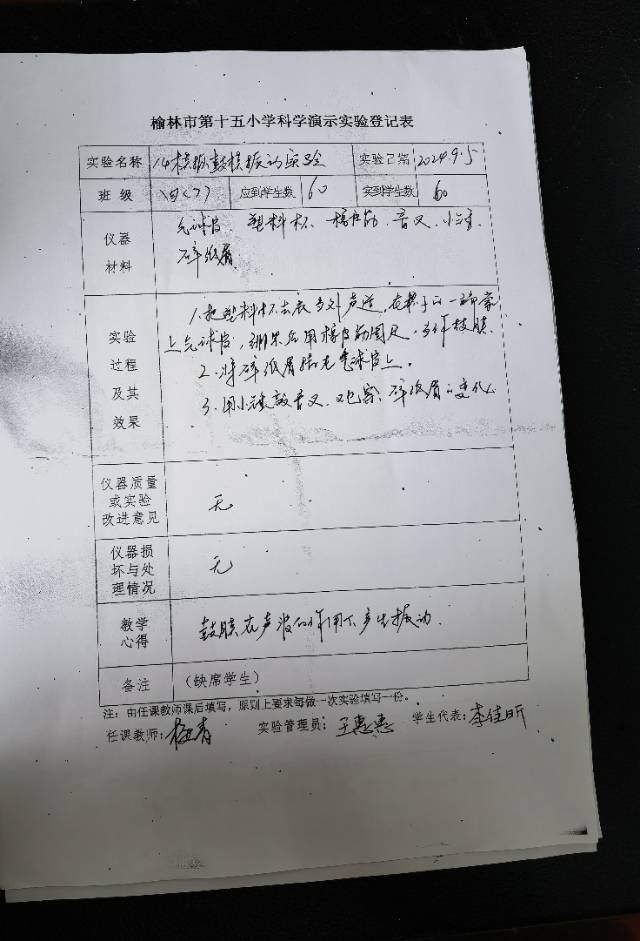 榆林市第十五小学科学演示实验登记表
实验名称 模拟鼓膜振动实验 实验日期 2024.9.5
班级 四(7) 应到学生数 60 实到学生数 60
仪器材料 气球皮 塑料杯 橡皮筋 音叉 小
碎纸屑
实验过程及其效果 1.把塑料杯去底 在杯子的一端蒙
上气球皮, 用橡皮筋固定
2.将碎纸屑 气球皮上。
3.用小 敲音叉 观察 碎纸屑的变化
仪器质量或实验改进意见 无
仪器损坏与处理情况 无
教学心得 鼓膜在声波的作用下产生振动.
备注 (缺席学生)
注:由任课教师课后填写,原则上要求每做一次实验填写一份。
任课教师: 实验管理员:王惠惠 学生代表:李佳昕